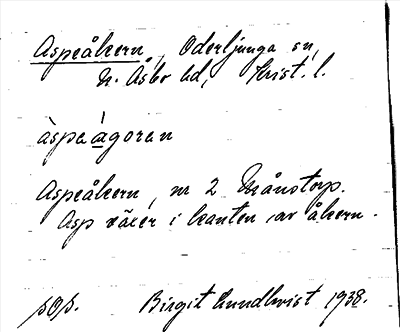 Aspeåkern, Oderljunga sn,
N. Åsbo hd, Krist. l.
àspeá̱goran
Aspeåkern, nr 2 Månstorp.
Asp växer i kanten av åkern.
pOp. Birgit Lundkvist 1938.